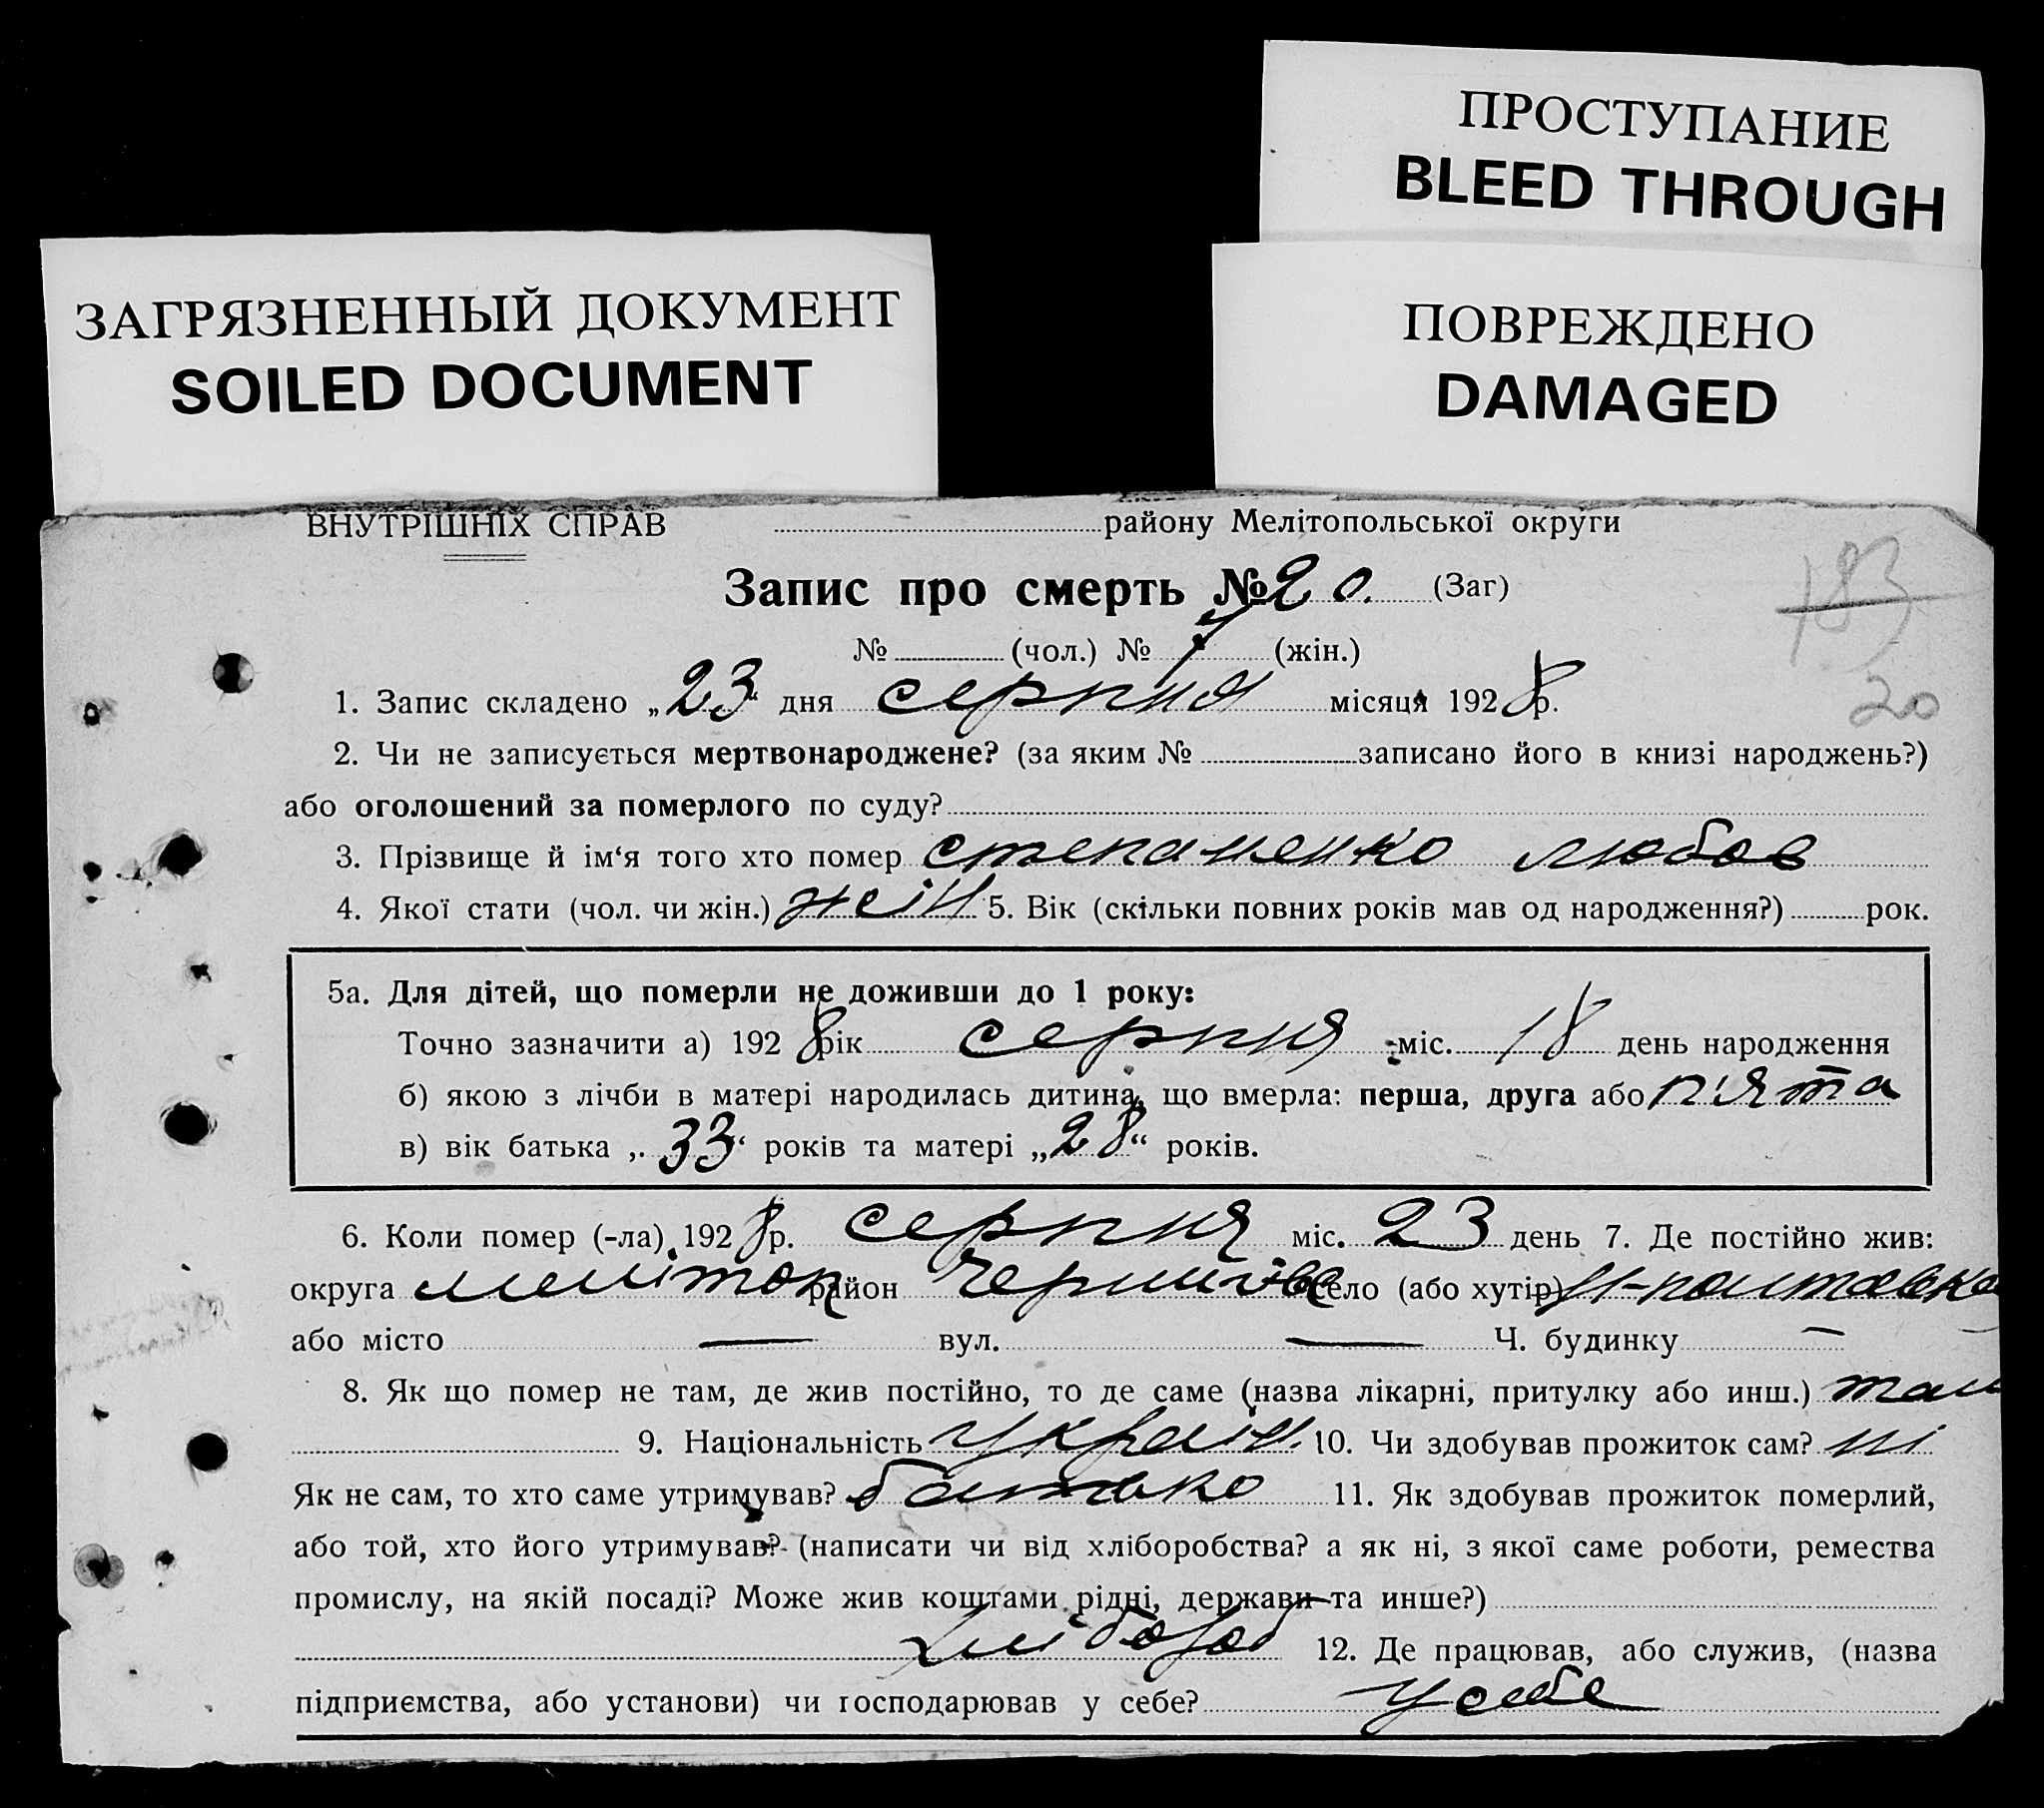 ПРОСТУПАНИЕ
BLEED THROUGH
ЗАГРЯЗНЕННЫЙ ДОКУМЕНТ
SOILED DOCUMENT
ПОВРЕЖДЕНО
DAMAGED
ВНУТРІШНІХ СПРАВ району Мелітопольської округи
Запис про смерть № 20. (Заг)
183
№ (чол.) № 7 (жін.)
1. Запис складено „23“ дня серпня місяця 1928 р.
20
2. Чи не записується мертвонароджене? (за яким № записано його в книзі народжень?)
або оголошений за померлого по суду?
3. Прізвище й ім‘я того хто помер Степаненко Любов
4. Якої стати (чол. чи жін.) жін 5. Вік (скільки повних років мав од народження?) рок.
5а. Для дітей, що померли не доживши до 1 року:
Точно зазначити а) 1928 рік серпня міс. 18 день народження
б) якою з лічби в матері народилась дитина, що вмерла: перша, друга або п'ята
в) вік батька „33“ років та матері „28“ років.
6. Коли помер (-ла) 1928 р. серпня міс. 23 день 7. Де постійно жив:
округа Меліттоп район Чернигівка село (або хутір) Н-Полтавка
або місто — вул. — Ч. будинку —
8. Як що помер не там, де жив постійно, то де саме (назва лікарні, притулку або инш.) там
9. Національність Україн. 10. Чи здобував прожиток сам? ні
Як не сам, то хто саме утримував? батько 11. Як здобував прожиток померлий,
або той, хто його утримував? (написати чи від хліборобства? а як ні, з якої саме роботи, ремества
промислу, на якій посаді? Може жив коштами рідні, держави та инше?)
хлібороб 12. Де працював, або служив, (назва
підприємства, або установи) чи господарював у себе? у себе